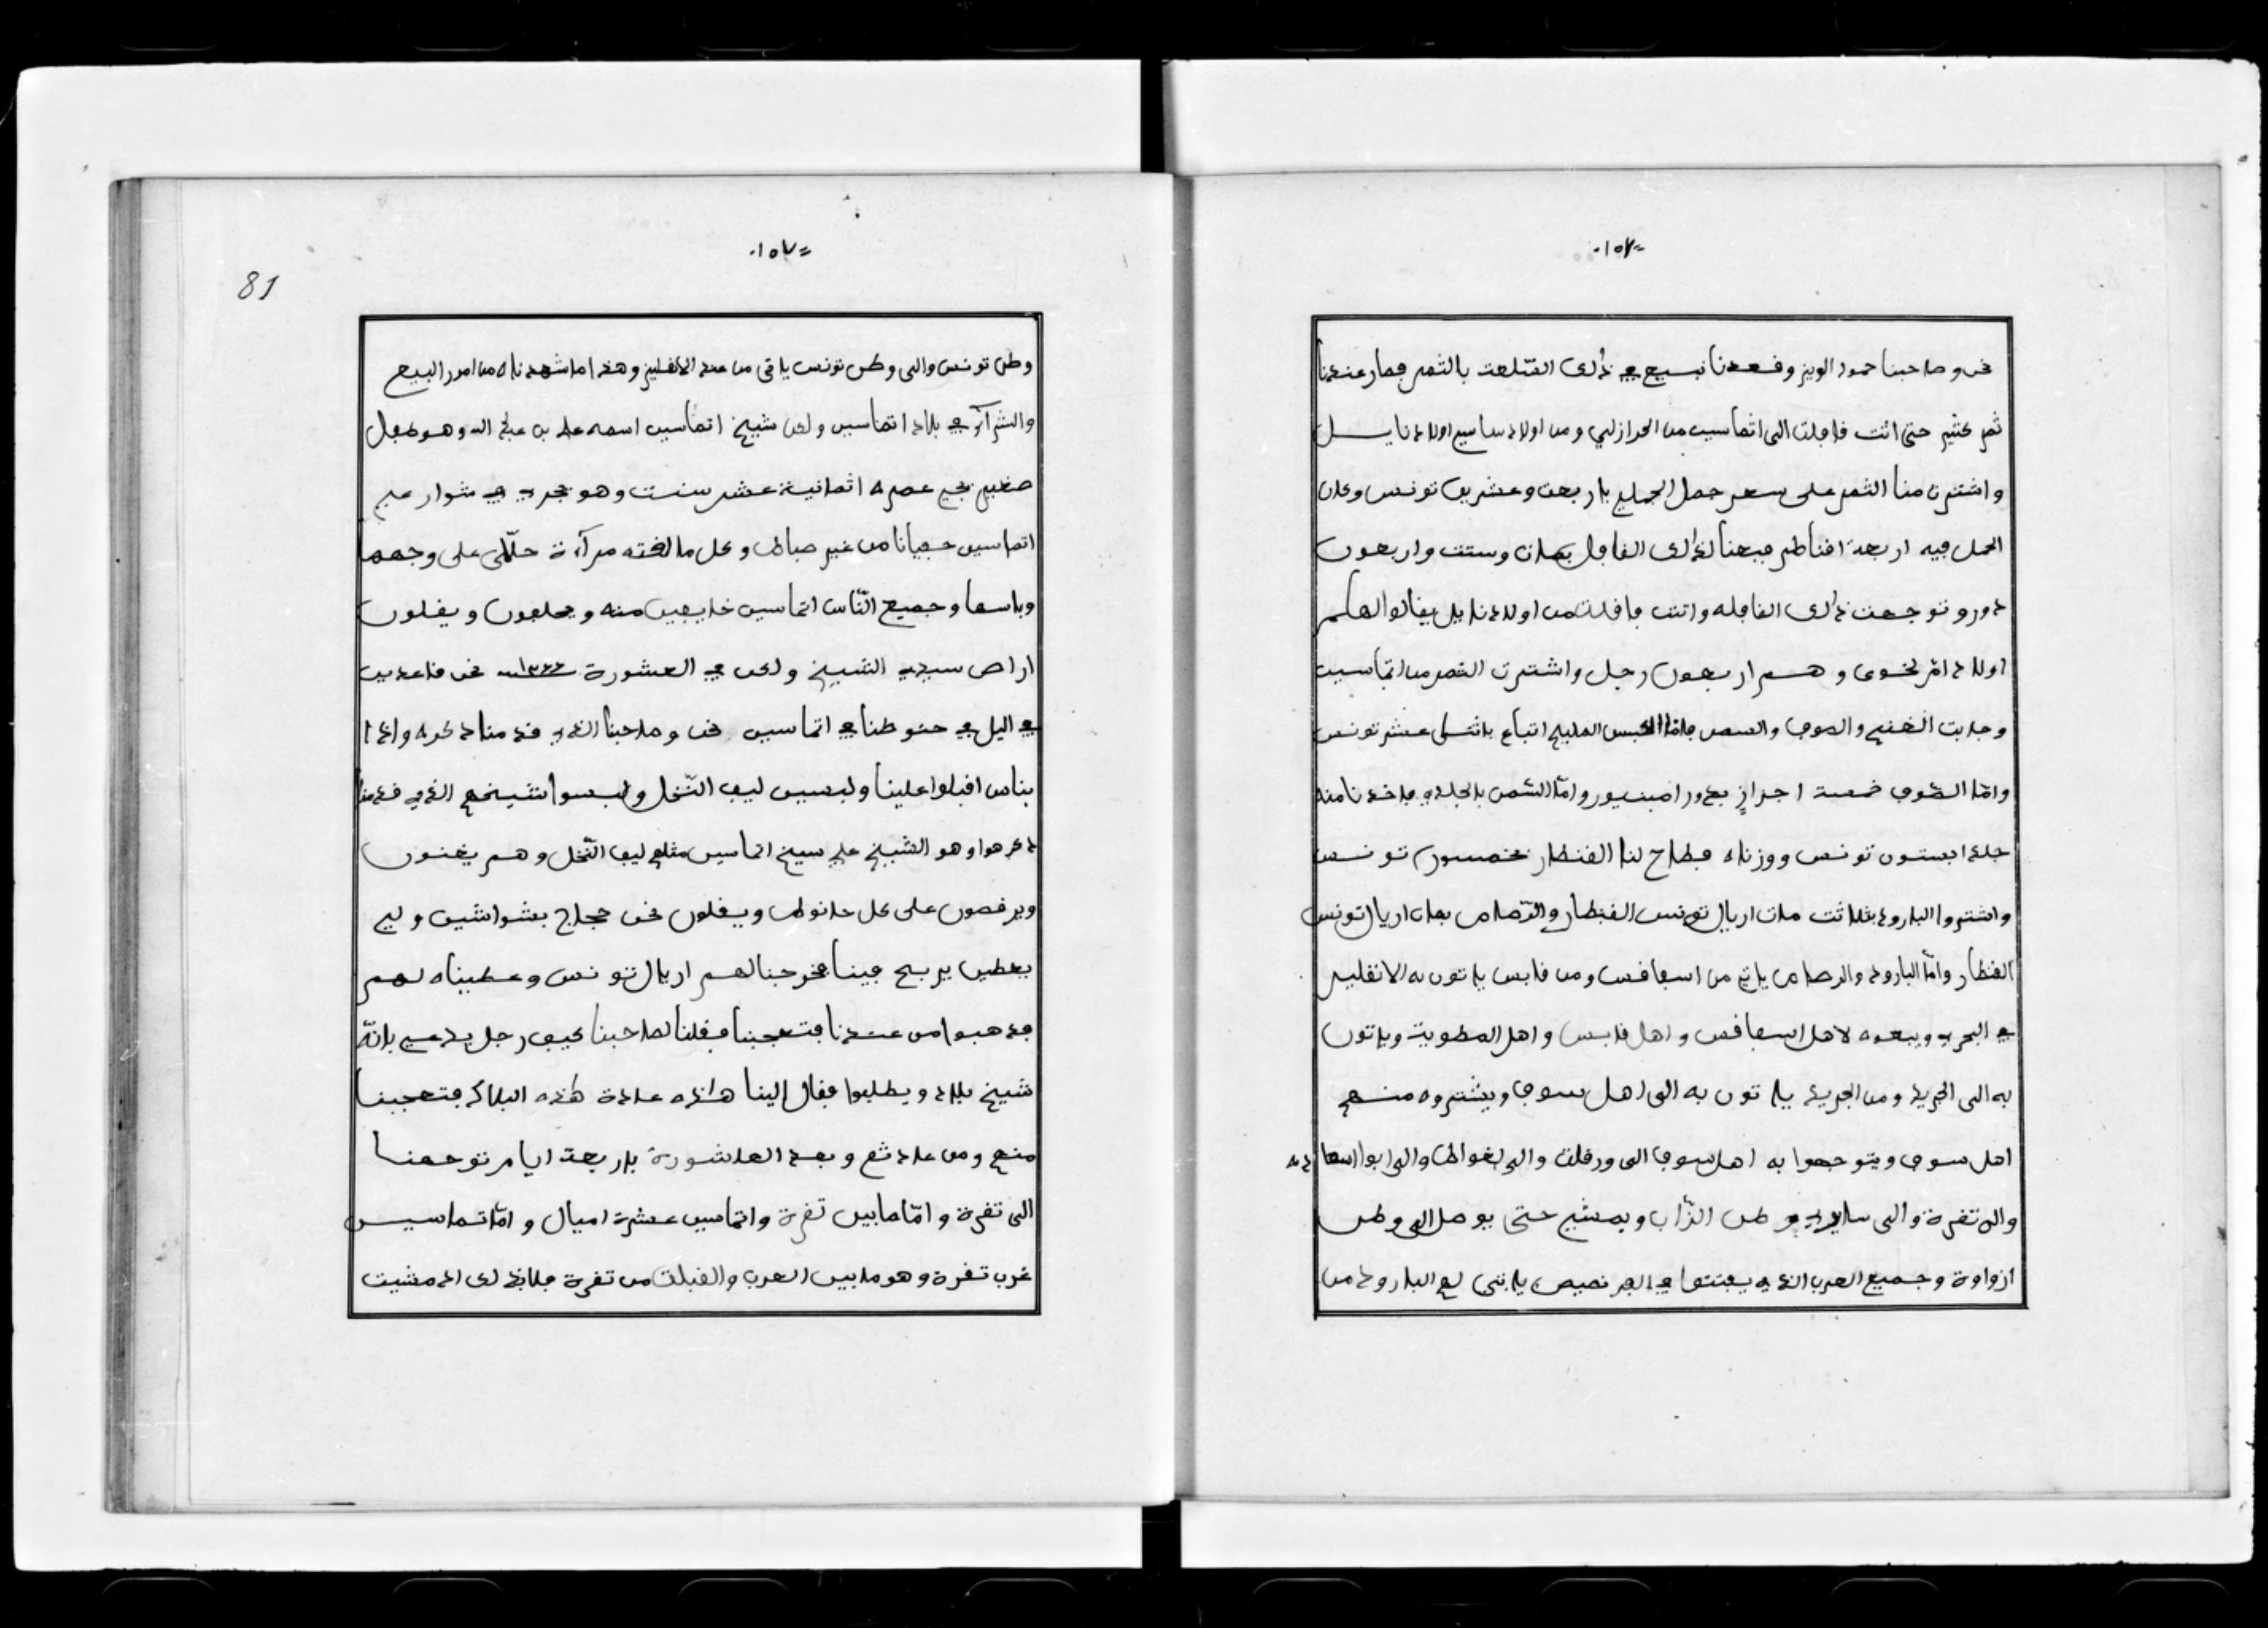 -١٥٧٠
نحن وصاحبنا حمود الويز وقعدنا نبيع في ذالك السّلعت بالثمر فصار عندنا
ثمر كثير حتى اتت قافلت الى اتماسين من الحرازلي ومن اولاد ساسي اولاد نايــل
واشترت منا الثمر على سعر حمل الجمل باربعت وعشرين تونس وكان
الحمل فيه اربعة اقناطر فبعنا لذالك القافل بمات وستت واربعون
دورو توجهت ذالك القافله واتت قافلت من اولاد نايل يقالوا لهم
اولاد ام لخوى وهـم اربعون رجل واشترت الثمر من اتماسين
وجابت الغنم والصوف والسمن فاما الكبس المليح اتباع باثنى عشر تونس
وامّا الصّوف خمست اجزاز بدورامبسيور وامّا السّمن بالجلدي فاخذنا منه
جلد ابستون تونس ووزناه فطاح لنا القنطار بخمسون تونس
واشتروا البارود بثلاثت مات اريال تونس القنطار والرّصاص بمات اريال تونس
القنطار وامّا البارود والرصاص ياتي من اسفاقس ومن قابس ياتون به الانقليز
في البحر ويبيعوه لاهل اسفاقس واهل قابس واهل المطوية وياتون
به الى الجريد ومن الجريد ياتون به الى اهل سوف ويشتروه منهـم
اهل سوف ويتوجهوا به اهل سوف الى ورقلت والى لغواط والى ابو السعاده
والى تقرة والى ساير وطن الزّاب ويمشي حتى يوصل الى وطن
ازواوة وجميع العرب الذي يفتنوا في الفرنصيص ياتي لهم البارود من
=١٥٧٠
81
وطن تونس والى وطن تونس ياتى من عند الانقليز وهذا ما شهدناه من امور البيع
والشرآء في بلاد اتماسين ولكن شيخ اتماسين اسمه علي بن عبد الله وهو طفل
صغير يجي عمره اثمانية عشر سنت وهو يجري في شوارع
اتماسين حفيانا من غير صباط وكل ما لقته مرآة حلّت على وجهها
وباسها وجميع النّاس اتماسين خايفين منه ويحلفون ويقلون
اراص سيدي الشيخ ولكن في العشورة ١٢٣٣ نحن قاعدين
في اليل في حنوطنا في اتماسين نحن وصاحبنا الذي قدمنا ذكره واذا
بناس اقبلوا علينا ولبسين ليف النّخل ولبسوا شيخهم الذي قدمنا
ذكرهوا وهو الشيخ علي سيخ اتماسين مثلهم ليف النّخل وهم يغنون
ويرقصون على كل حانوط ويقلون نحن حجاج بشواشين ولي
يعطين يربح فينا فخرجنا لهم اريال تونس وعطيناه لهم
فذهبوا من عندنا فتعجبنا فقلنا لصاحبنا كيف رجل يدعي بانّه
شيخ بلاد ويطلبوا فقال الينا هاذه عادة هاذه البلاد فتعجبنا
منهم ومن عادتهم وبعد العاشورة باربعة ايام توجهنا
الى تقرة وامّا ما بين تقرة واتماسين عشرة اميال وامّا تماسيـن
غرب تقرة وهو ما بين الغرب والقبلت من تقرة فلابد لى اذ مشيت